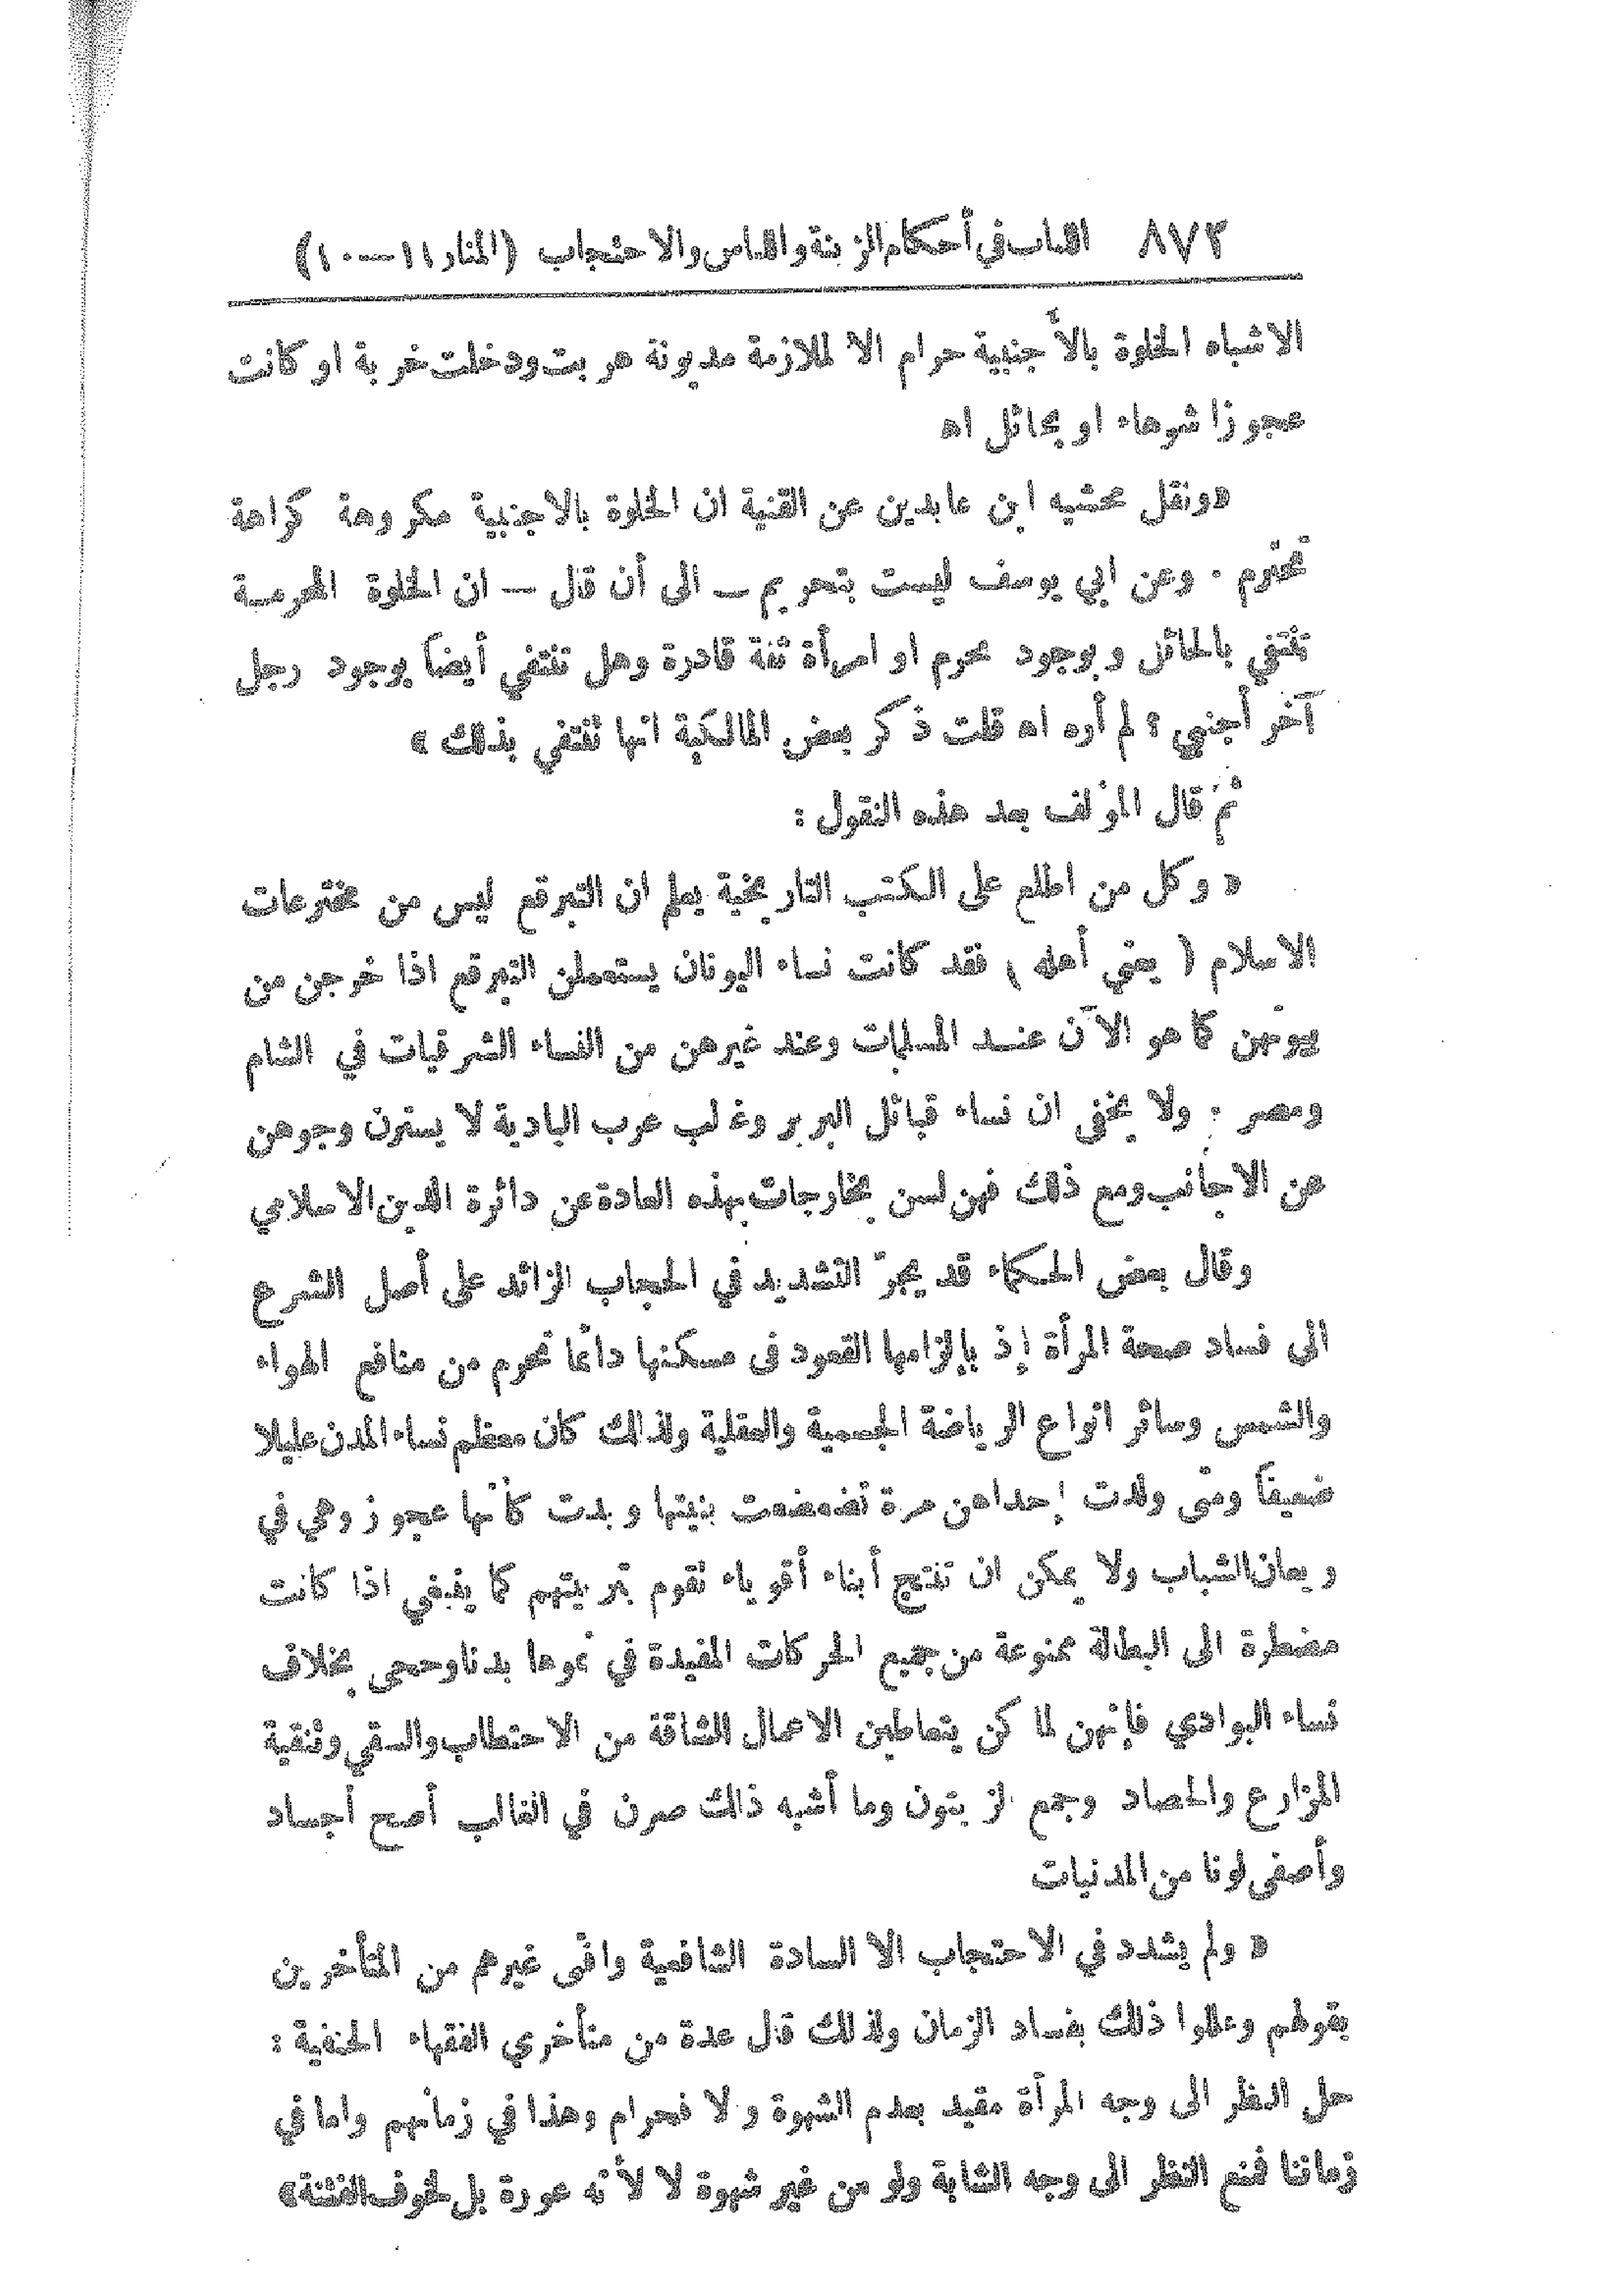 ٨٧٢ اللباب في أحكام الزينة واللباس والاحتجاب (المنار ١١—١٠)
الاشباه الخلوة بالأجنبية حرام الا لملازمة مديونة هربت ودخلت خربة او كانت
عجوزا شوهاء او بحائل اه
«ونقل محشيه ابن عابدين عن القنية ان الخلوة بالاجنبية مكروهة كراهة
تحريم . وعن ابي يوسف ليست بتحريم — الى أن قال — ان الخلوة المحرمة
تنتفي بالحائل وبوجود محرم او امرأة ثقة قادرة وهل تنتفي أيضاً بوجود رجل
آخر أجنبي ؟ لم أره اه قلت ذكر بعض المالكية انها تنتفي بذلك »
ثم قال المؤلف بعد هذه النقول :
« وكل من اطلع على الكتب التاريخية يعلم ان التبرقع ليس من مخترعات
الاسلام ( يعني أهله ) فقد كانت نساء اليونان يستعملن التبرقع اذا خرجن من
بيوتهن كما هو الآن عند المسلمات وعند غيرهن من النساء الشرقيات في الشام
ومصر : ولا يخفى ان نساء قبائل البربر وغالب عرب البادية لا يسترن وجوهن
عن الاجانب ومع ذلك فهن لسن بخارجات بهذه العادة عن دائرة الدين الاسلامي
وقال بعض الحكماء قد يجرّ التشديد في الحجاب الزائد على أصل الشرع
الى فساد صحة المرأة إذ بإلزامها القعود في مسكنها دائما تحرم من منافع الهواء
والشمس وسائر انواع الرياضة الجسمية والعقلية ولذلك كان معظم نساء المدن عليلا
ضعيفاً ومتى ولدت إحداهن مرة تضعضعت بنيتها وبدت كأنها عجوز وهي في
ريعان الشباب ولا يمكن ان تنتج أبناء أقوياء تقوم بتربيتهم كما ينبغي اذا كانت
مضطرة الى البطالة ممنوعة من جميع الحركات المفيدة في نموها بدنا وحجى بخلاف
نساء البوادي فإنهن لما كن يتعاطين الاعمال الشاقة من الاحتطاب والسقي وتنقية
المزارع والحصاد وجمع الزيتون وما أشبه ذلك صرن في الغالب أصح أجساد
وأصفى لونا من المدنيات
« ولم يشدد في الاحتجاب الا السادة الشافعية وافتى غيرهم من المتأخرين
بقولهم وعللوا ذلك بفساد الزمان ولذلك قال عدة من متأخري الفقهاء الحنفية :
حل النظر الى وجه المرأة مقيد بعدم الشهوة ولا فحرام وهذا في زمانهم واما في
زماننا فمنع النظر الى وجه الشابة ولو من غير شهوة لا لأنه عورة بل لخوف الفتنة»